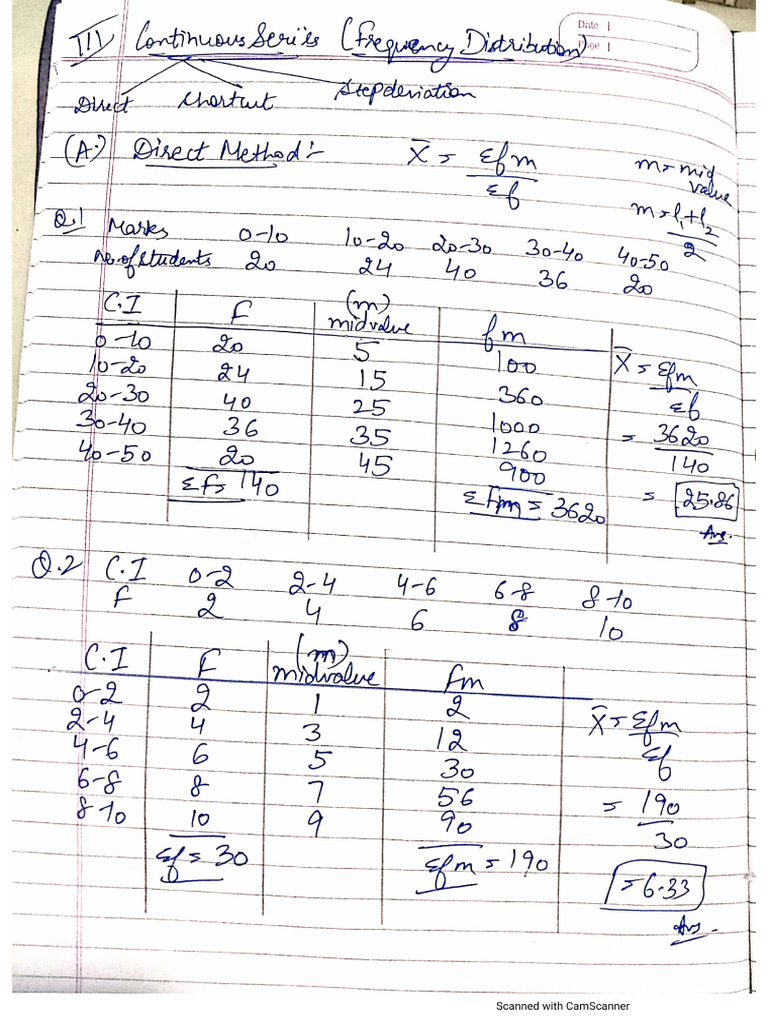 Date 1
Page 1
III) Continuous Series (Frequency Distribution)
Direct Shortcut Stepdeviation
(A:) Direct Method:- X̄ = Σfm / Σf m = mid value
m = l₁+l₂ / 2
Q.1 Marks 0-10 10-20 20-30 30-40 40-50
No. of students 20 24 40 36 20
C.I F (m) midvalue fm
0-10 20 5 100 X̄ = Σfm / Σf
10-20 24 15 360
20-30 40 25 1000 = 3620 / 140
30-40 36 35 1260
40-50 20 45 900 = 25.86
Σf = 140 Σfm = 3620 Ans.
Q.2 C.I 0-2 2-4 4-6 6-8 8-10
F 2 4 6 8 10
C.I F (m) midvalue Fm
0-2 2 1 2 X̄ = Σfm / Σf
2-4 4 3 12
4-6 6 5 30
6-8 8 7 56 = 190 / 30
8-10 10 9 90
Σf = 30 Σfm = 190 = 6.33
Ans.
Scanned with CamScanner